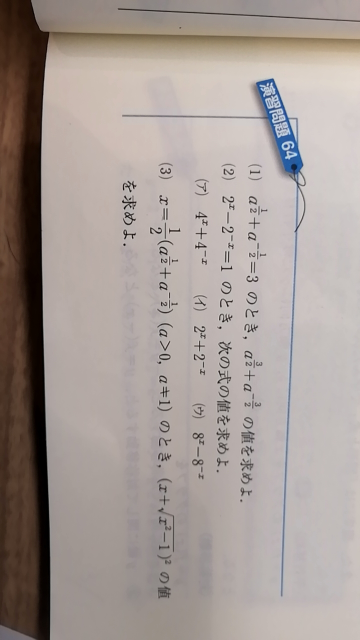 演習問題 64
(1) $a^{\frac{1}{2}}+a^{-\frac{1}{2}}=3$ のとき,$a^{\frac{3}{2}}+a^{-\frac{3}{2}}$ の値を求めよ.
(2) $2^x-2^{-x}=1$ のとき,次の式の値を求めよ.
(ア) $4^x+4^{-x}$ (イ) $2^x+2^{-x}$ (ウ) $8^x-8^{-x}$
(3) $x=\frac{1}{2}(a^{\frac{1}{2}}+a^{-\frac{1}{2}})$ ($a>0$, $a\neq1$) のとき,$(x+\sqrt{x^2-1})^2$ の値
を求めよ.